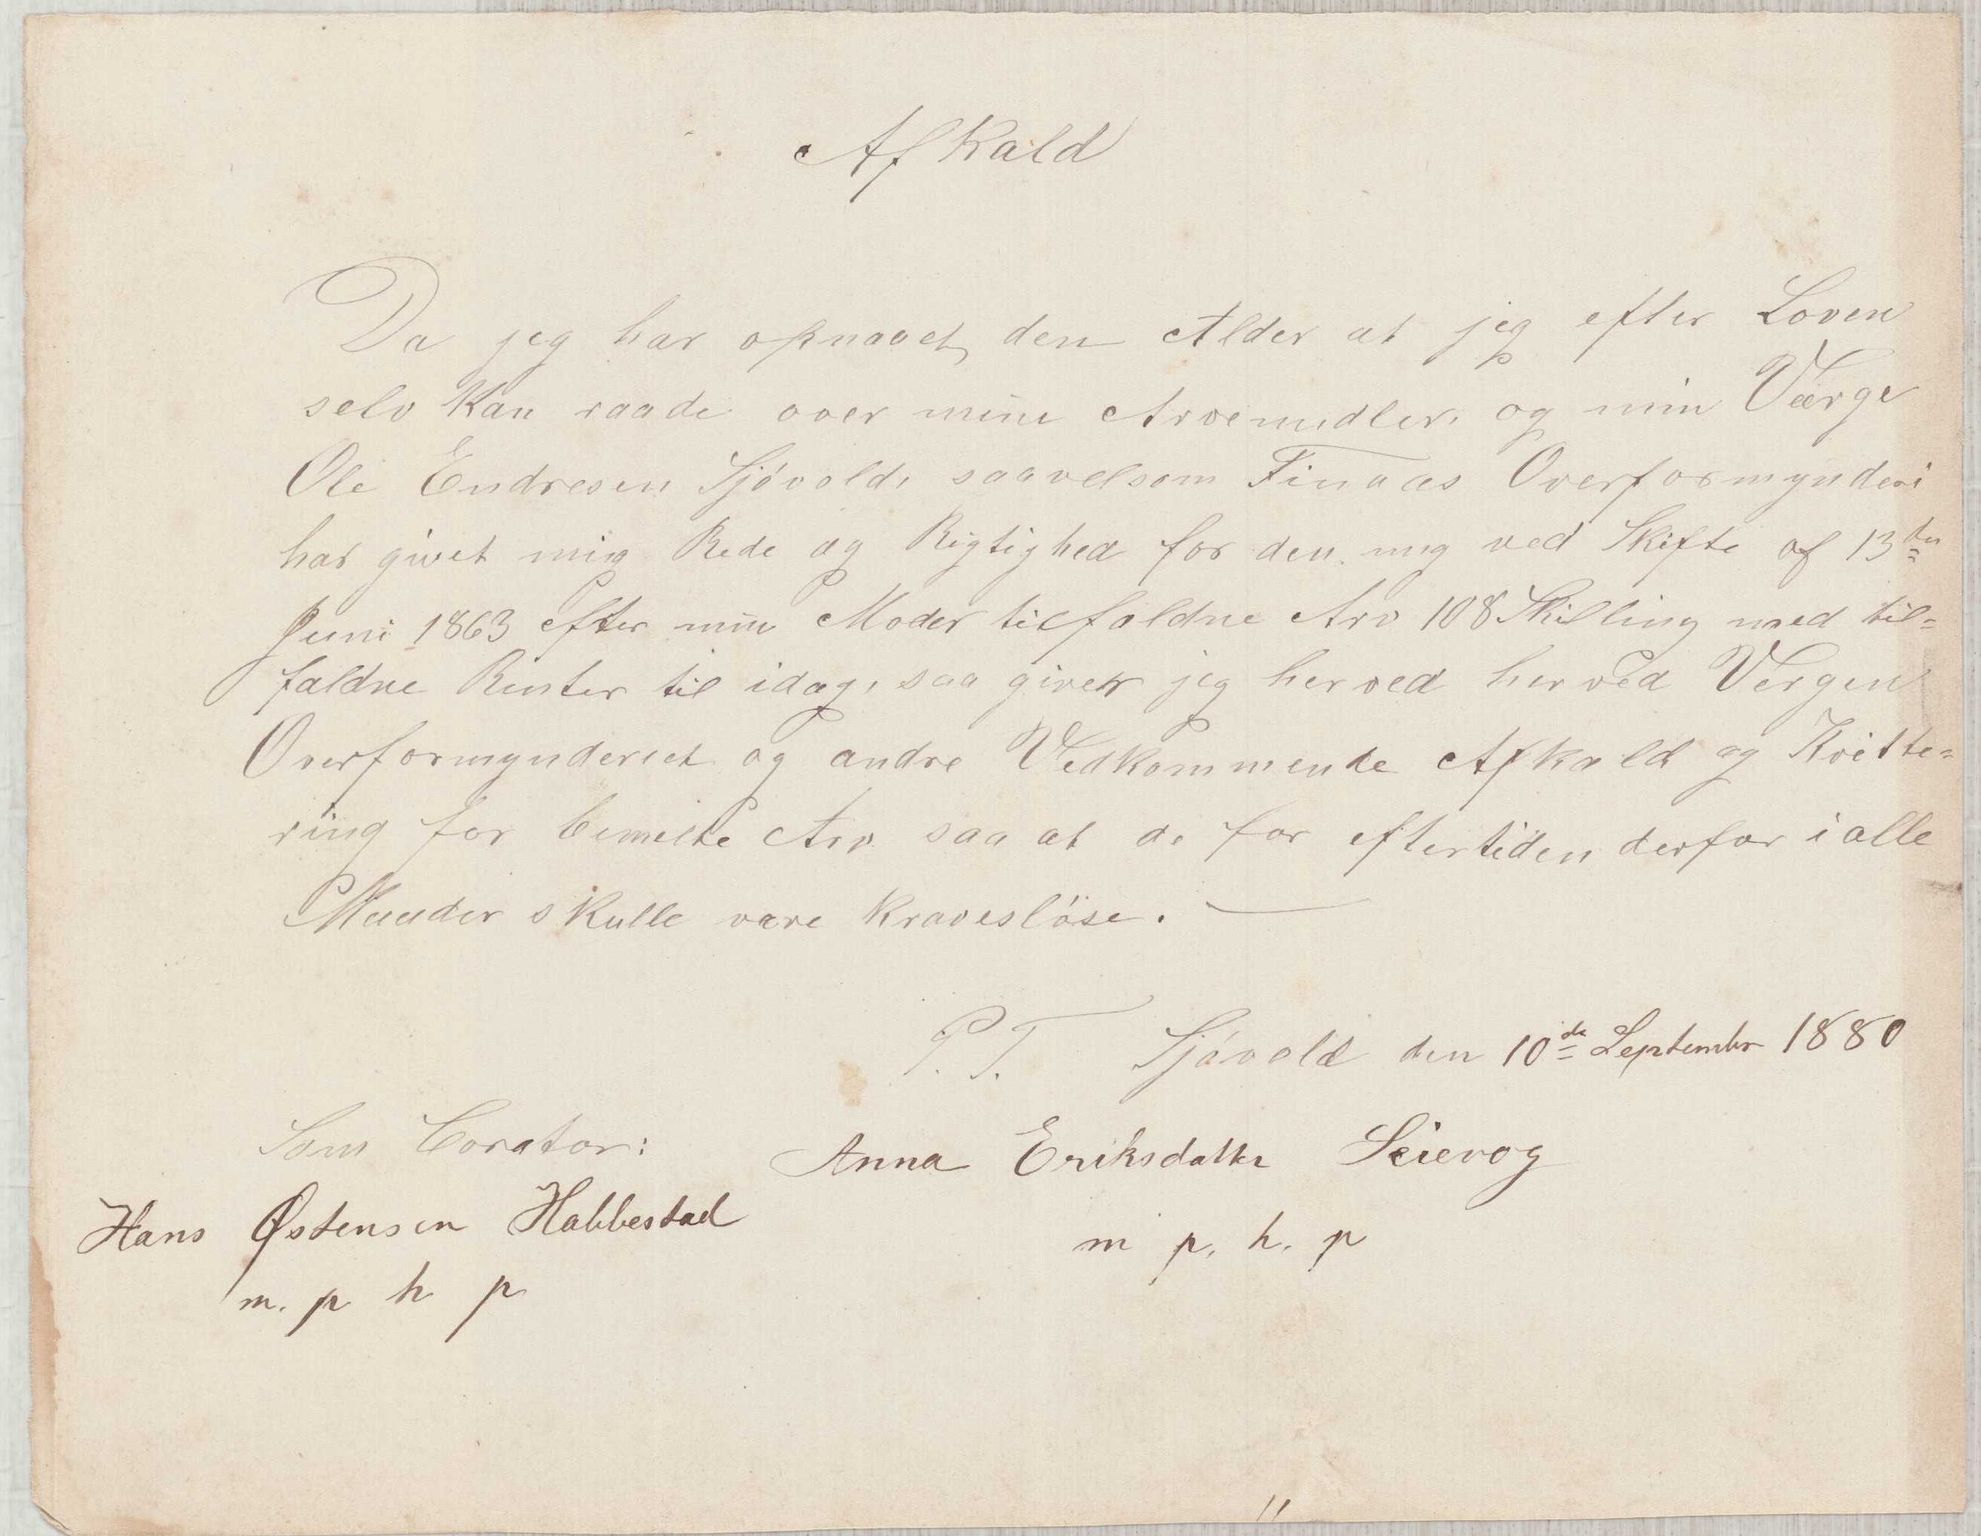 Afkald
Da jeg har opnaaet den Alder at jeg efter Loven
selv kan raade over mine Arvemidler, og min Værge
Ole Endresen Sjövold, saavelsom Finaas Overformynderi
har givet mig Rede og Rigtighed for den mig ved Skifte af 13de
Juni 1863 efter min Moder tilfaldne Arv 108 Skilling med til=
faldne Renter til idag, saa giver jeg herved herved Vergen
Overformynderiet og andre Vedkommende Afkald og Kvitte=
ring for bemelte Arv saa at de for eftertiden derfor i alle
Maader skulle være kravesløse. —
P. T. Sjövold den 10de September 1880
Som Corator:
Anna Eriksdatter Seievog
Hans Østensen Habbestad
m p. h. p
m. p h p